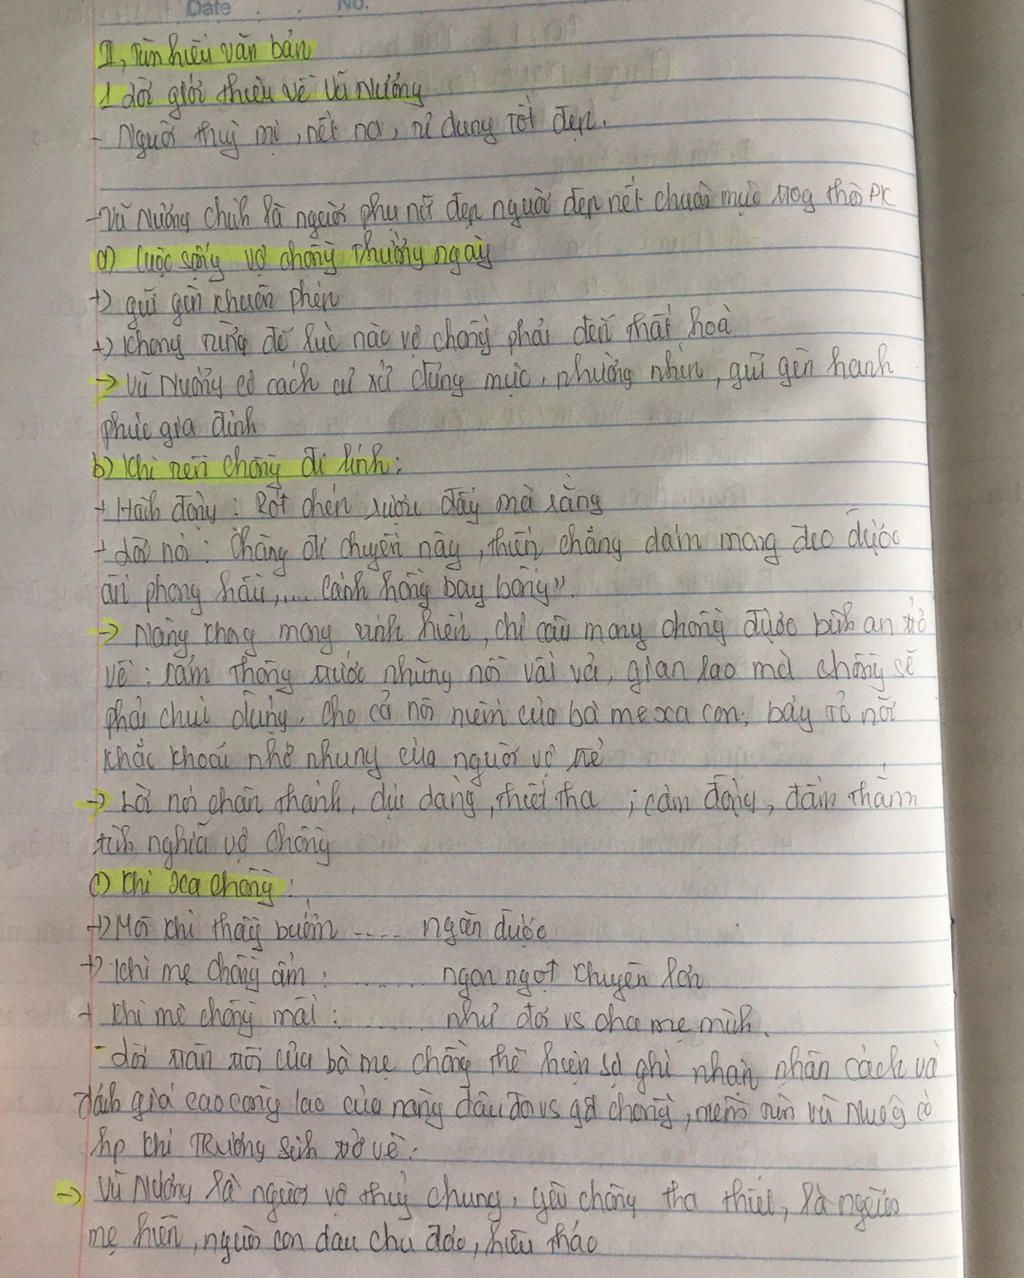 Date . . No.
II, Tìm hiểu văn bản
1 Lời giới thiệu về Vũ Nương
- Người thuỳ mị, nết na, tư dung tốt đẹp.
- Vũ Nương chính là người phụ nữ đẹp người đẹp nết chuẩn mực trog thời PK
a) Cuộc sống vợ chồng thường ngày
+) giữ gìn khuôn phép
+) không từng để lúc nào vợ chồng phải đến thất hoà
→ Vũ Nương có cách cư xử đúng mực, nhường nhịn, giữ gìn hạnh
phúc gia đình
b) Khi tiễn chồng đi lính:
+ Hành động: Rót chén rượu đầy mà rằng
+ Lời nói: Chàng đi chuyến này, thiếp chẳng dám mong đeo được
ấn phong hầu,... cánh hồng bay bổng".
→ Nàng khog mong vinh hiển, chỉ cầu mong chồng được bình an trở
về: cảm thông trước những nỗi vất vả, gian lao mà chồng sẽ
phải chịu đựng. Cho cả nỗi niềm của bà mẹ xa con, bày tỏ nỗi
khắc khoải nhớ nhung của người vợ trẻ
→ Lời nói chân thành, dịu dàng, thiết tha; cảm động, đằm thắm
tình nghĩa vợ chồng
c) Khi xa chồng:
+) Mỗi khi thấy bướm .... ngăn được
+) Khi mẹ chồng ốm: ...... ngon ngọt khuyên lơn
+ Khi mẹ chồng mất: ...... như đối vs cha mẹ mình.
- Lời trăn trối của bà mẹ chồng thể hiện sự ghi nhận nhân cách và
đánh giá cao công lao của nàng dâu đối vs gđ chồng, niềm tin Vũ Nương có
hp khi Trương Sinh trở về.
→ Vũ Nương là người vợ thuỷ chung, yêu chồng tha thiết, là người
mẹ hiền, người con dâu chu đáo, hiếu thảo